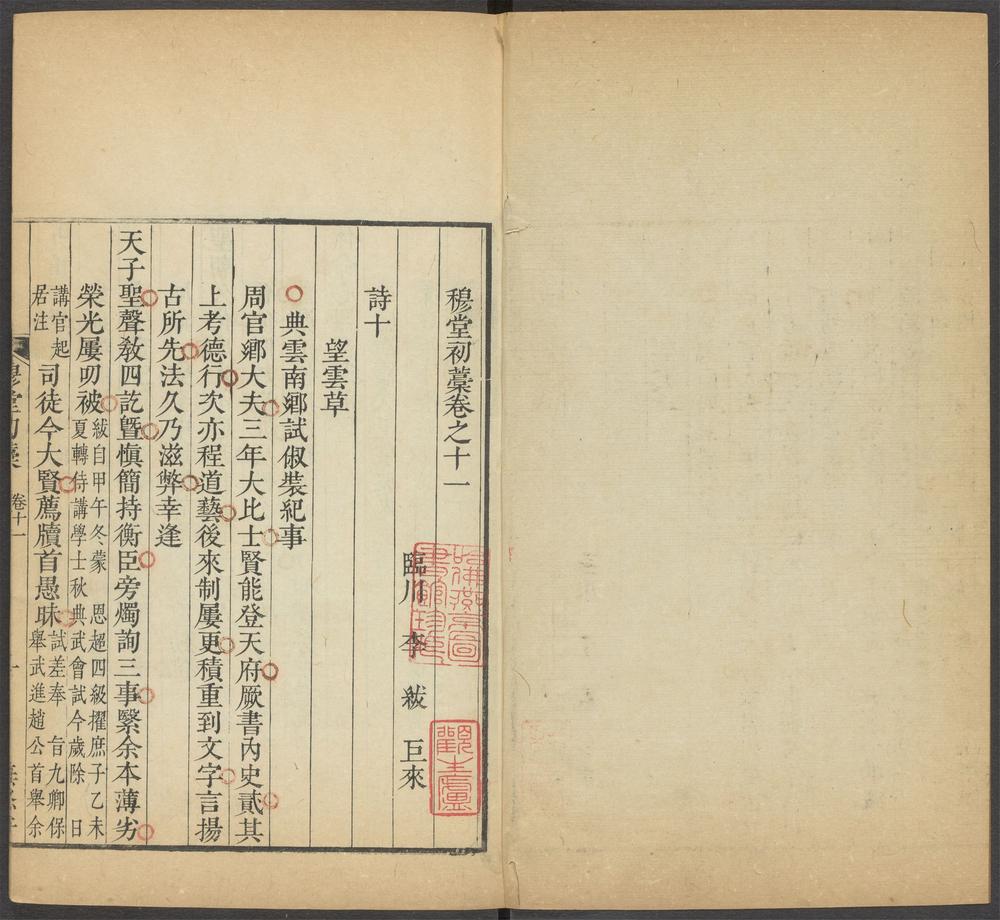 穆堂初藁卷之十一
臨川 李 紱 巨來
詩十
望雲草
典雲南鄉試俶裝紀事
周官鄉大夫三年大比士賢能登天府厥書內史貳其
上考德行次亦程道藝後來制屢更積重到文字言揚
古所先法久乃滋弊幸逢
天子聖聲敎四訖曁愼簡持衡臣旁燭詢三事緊余本薄劣
榮光屢叨被
紱自甲午冬蒙 恩超四級擢庶子乙未
夏轉侍講學士秋典武會試今歲除 日
講官起
居注
司徒今大賢薦牘首愚昧
試差奉 旨九卿保
舉武進趙公首舉余
穆堂初藁 卷十一 一